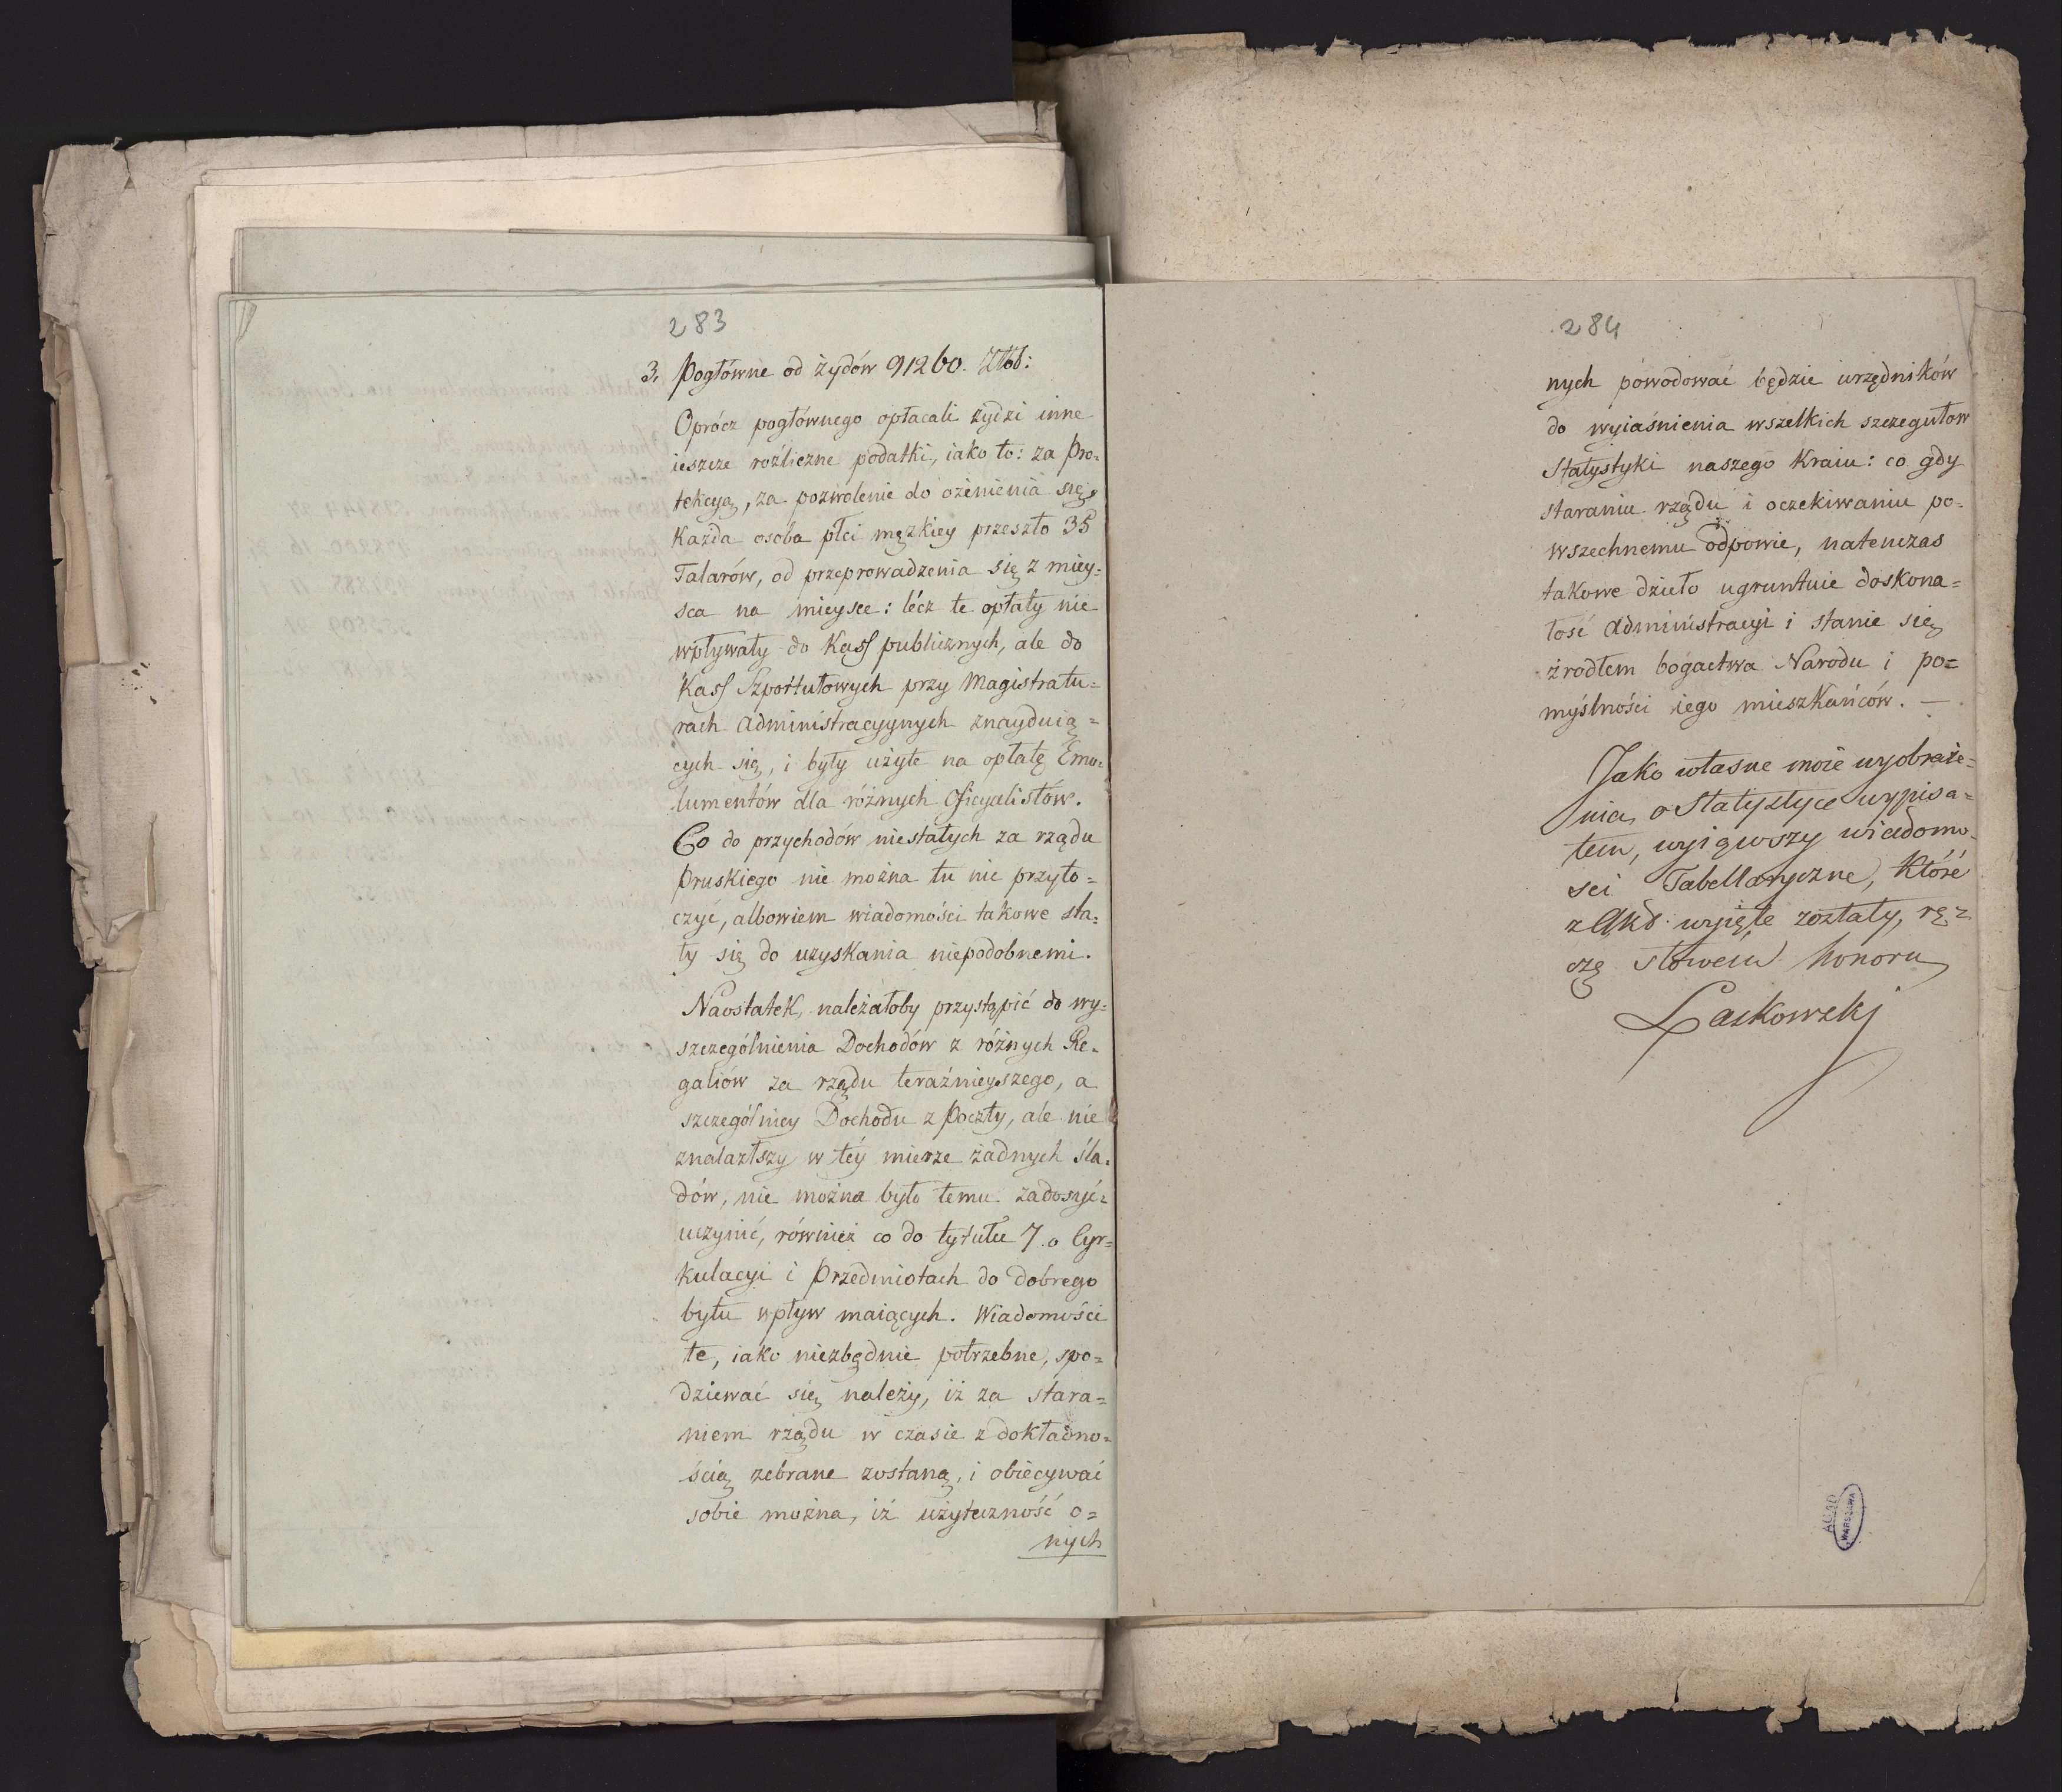 283
3. Pogłówne od żydów 91260. Złot:
Oprócz pogłównego opłacali żydzi inne
ieszcze rozliczne podatki, iako to: za Pro=
tekcyą, za pozwolenie do ożenienia się,
Każda osoba płci męzkiey przeszło 35
Talarów, od przeprowadzenia się z miey=
sca na mieysce: lécz te opłaty nie
wpływały do Kass publicznych, ale do
Kass Szportułowych przy Magistratu=
rach administracyynych znayduią=
cych się, i były użyte na opłatę Emo=
lumentów dla różnych Oficyalistów.
Co do przychodów niestałych za rządu
Pruskiego nie można tu nic przyto=
czyć, albowiem wiadomości takowe sta=
ły się do uzyskania niepodobnemi.
Naostatek, należałoby przystąpić do wy=
szczególnienia Dochodów z różnych Re=
galiów za rządu teraźnieyszego, a
szczególniey Dochodu z Poczty, ale nie
znalazłszy w téy mierze żadnych śla=
dów, nie można było temu zadosyć=
uczynić, również co do tytułu 7. o Cyr=
kulacyi i Przedmiotach do dobrego
bytu wpływ maiących. Wiadomości
te, iako niezbędnie potrzebne, spo=
dziewać się należy, iż za stara=
niem rządu w czasie z dokładno=
ścią zebrane zostaną, i obiecywać
sobie można, iż użyteczność o=
nych
284
nych powodować będzie urzędników
do wyiaśnienia wszelkich szczegułow
Statystyki naszego Kraiu: co gdy
staraniu rządu i oczekiwaniu po=
wszechnemu odpowie, natenczas
takowe dzieło ugruntuie doskona=
łość administracyi i stanie się
źrodłem bogactwa Narodu i po=
myślności iego mieszkańców. —
Jako własne moie wyobraże=
nia o Statystyce wypisa=
łem, wyiąwszy wiadomo=
sci Tabellaryczne, Któré
z Akd. wyięte zoztały, rę=
czę słowem honoru
Laskowski
AGAD
WARSZAWA